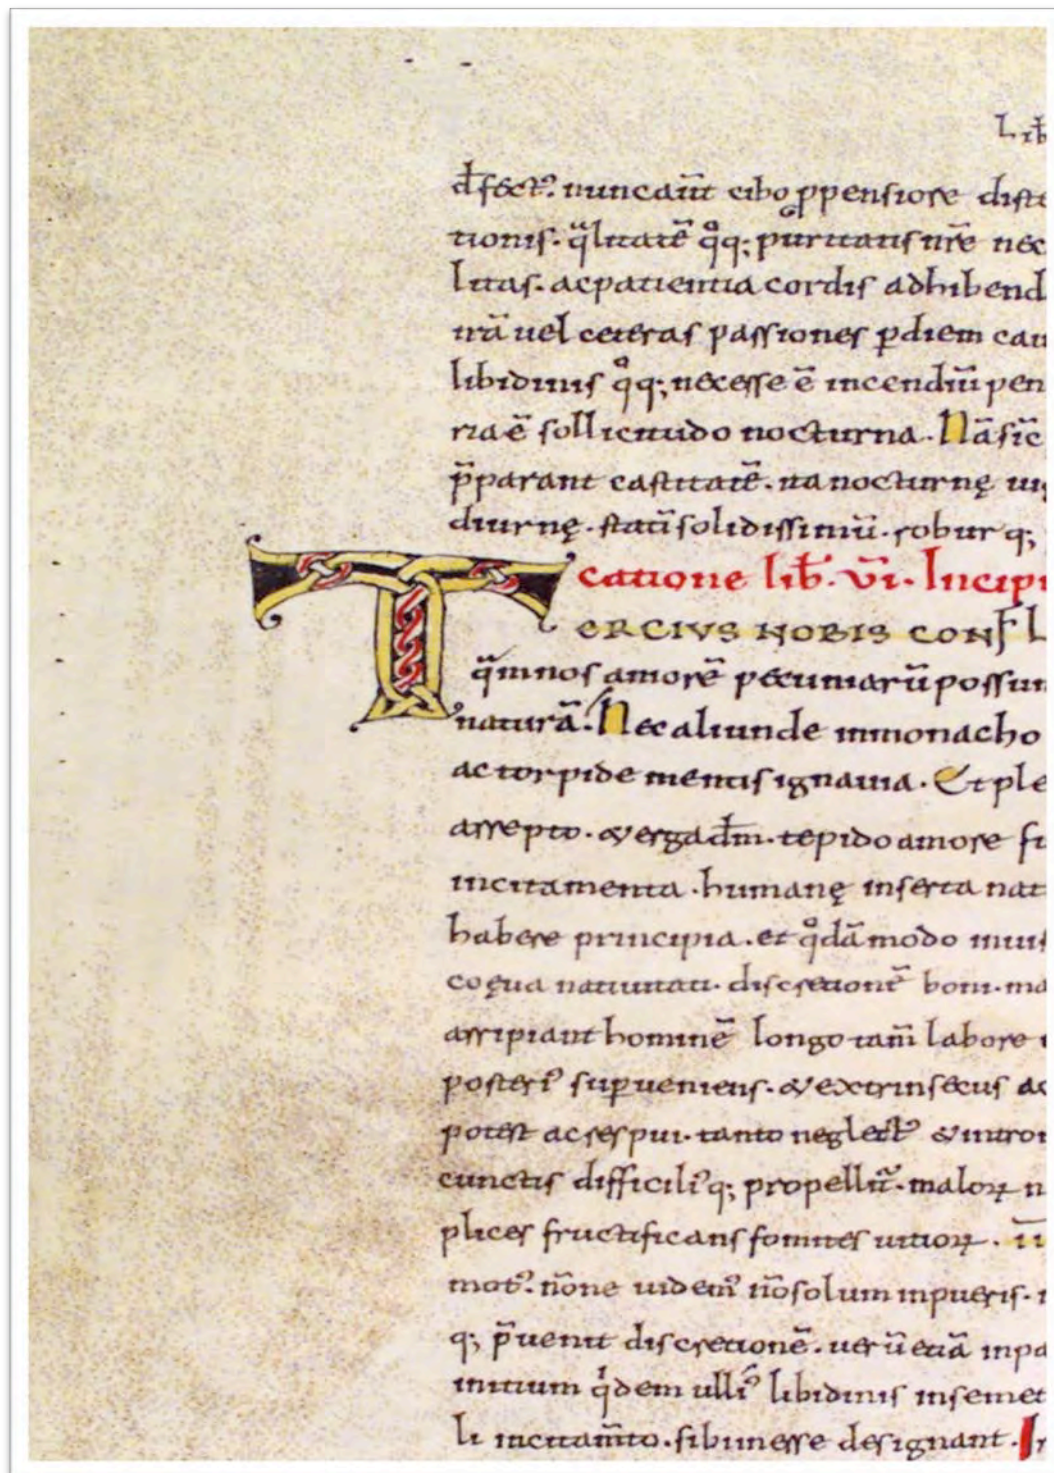 Lib̄
d̄fect᾽. nunc aūt cibo ꝓpensiore dist
tionis. q̄litatē qͦq; puritatis nr̄e nec
litas. ac patientia cordis adhibend
irā uel ceteras passiones ꝑ diem cau
libidinis qͦq; necesse ē incendiū pen
ria ē sollicitudo nocturna. Nā sic̄
p̄parant castitatē. ita nocturnę uig
diurnę. statū solidissimū. robur q;
catione lib̄. vi. Incipi
TERCIVS NOBIS CONFL
q̄m nos amorē pecuniarū possum
naturā. Nec aliunde in monacho
ac torpide mentis ignauia. Et ple
arrepto. & erga dm̄. tepido amore fu
incitamenta. humanę inserta nat
habere principia. et qͦdāmodo inuis
coęua natiuitati. discretionē boni. ma
arripiant hominē longo tam̄ labore
posteri᾽ suꝑueniens. & extrinsecus ac
potest ac respui. tanto neglect᾽ & intro
cunctis difficili᾽q; propellit̄. maloꝝ n
plices fructificans fomites uitioꝝ.
mot᾽. nōne uidem᾽ nō solum in pueris. i
q; p̄uenit discretionē. uerū etiā in pa
initium qͥdem ulli᾽ libidinis in semet
li incitam̄to. sibi inesse designant. In